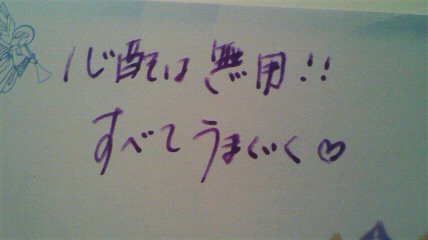 心配は無用!!
すべてうまくいく♡